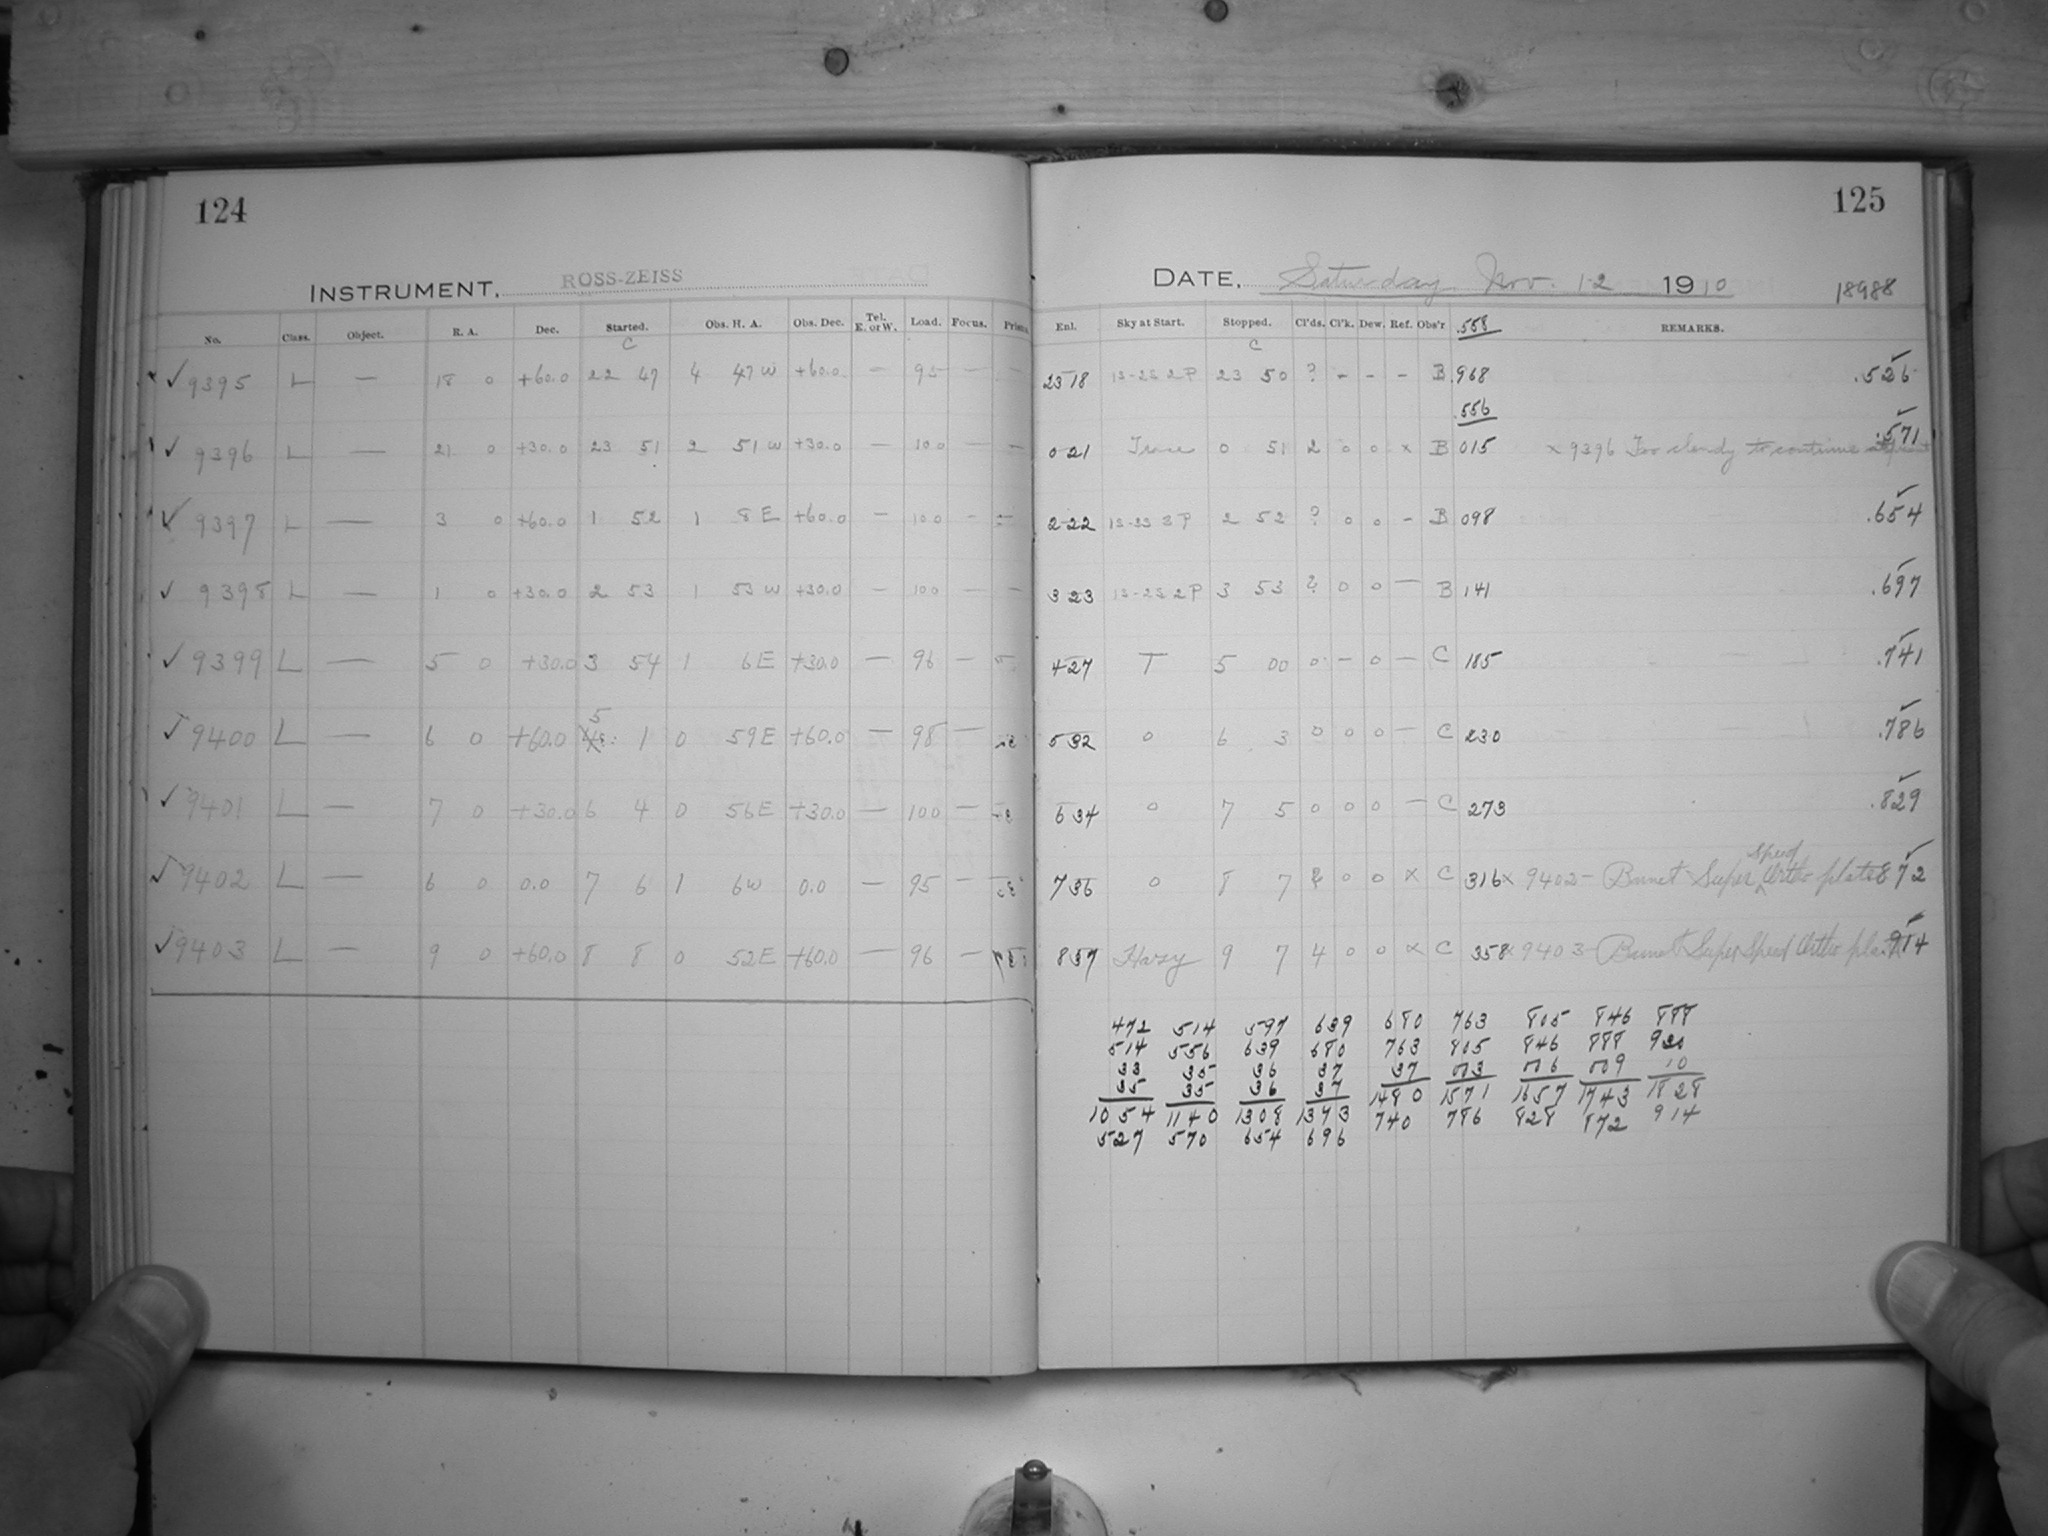 124
INSTRUMENT, ROSS-ZEISS
No. Class. Object. R. A. Dec. Started. Obs. H. A. Obs. Dec. Tel. E. or W. Load. Focus. Prism
C
✓ 9395 L — 18 0 +60.0 22 47 4 47 W +60.0 — 95 — —
✓ 9396 L — 21 0 +30.0 23 51 2 51 W +30.0 — 100 — —
✓ 9397 L — 3 0 +60.0 1 52 1 8 E +60.0 — 100 —
✓ 9398 L — 1 0 +30.0 2 53 1 53 W +30.0 — 100 — —
✓ 9399 L — 5 0 +30.0 3 54 1 6 E +30.0 — 96 —
✓ 9400 L — 6 0 +60.0 5 1 0 59 E +60.0 — 98 —
✓ 9401 L — 7 0 +30.0 6 4 0 56 E +30.0 — 100 —
✓ 9402 L — 6 0 0.0 7 6 1 6 W 0.0 — 95 —
✓ 9403 L — 9 0 +60.0 8 8 0 52 E +60.0 — 96 —
125
DATE, Saturday Nov. 12 1910 18988
Enl. Sky at Start. Stopped. Cl'ds. Cl'k. Dew. Ref. Obs'r .558 REMARKS.
C
23 18 1S-2S 2P 23 50 ? - - - B .968 .526
.556
0 21 Trace 0 51 2 0 0 x B 015 x 9396 Too cloudy to continue .571
2 22 1S-3S 3P 2 52 ? 0 0 - B 098 .654
3 23 1S-2S 2P 3 53 ? 0 0 — B 141 .697
4 27 T 5 00 0 - 0 — C 185 .741
5 32 0 6 3 0 0 0 — C 230 .786
6 34 0 7 5 0 0 0 — C 273 .829
7 36 0 8 7 2 0 0 x C 316 x 9402 - Burnet Super speed Ortho plate 872
8 37 Hazy 9 7 4 0 0 x C 358 x 9403 - Burnet Super Speed Ortho plate 914
472 514 597 639 680 763 805 846 888
514 556 639 680 763 805 846 888 930
33 35 36 37 37 03 06 09 10
35 35 36 37 1480 1571 1657 1743 1828
1054 1140 1308 1393 740 786 828 872 914
527 570 654 696